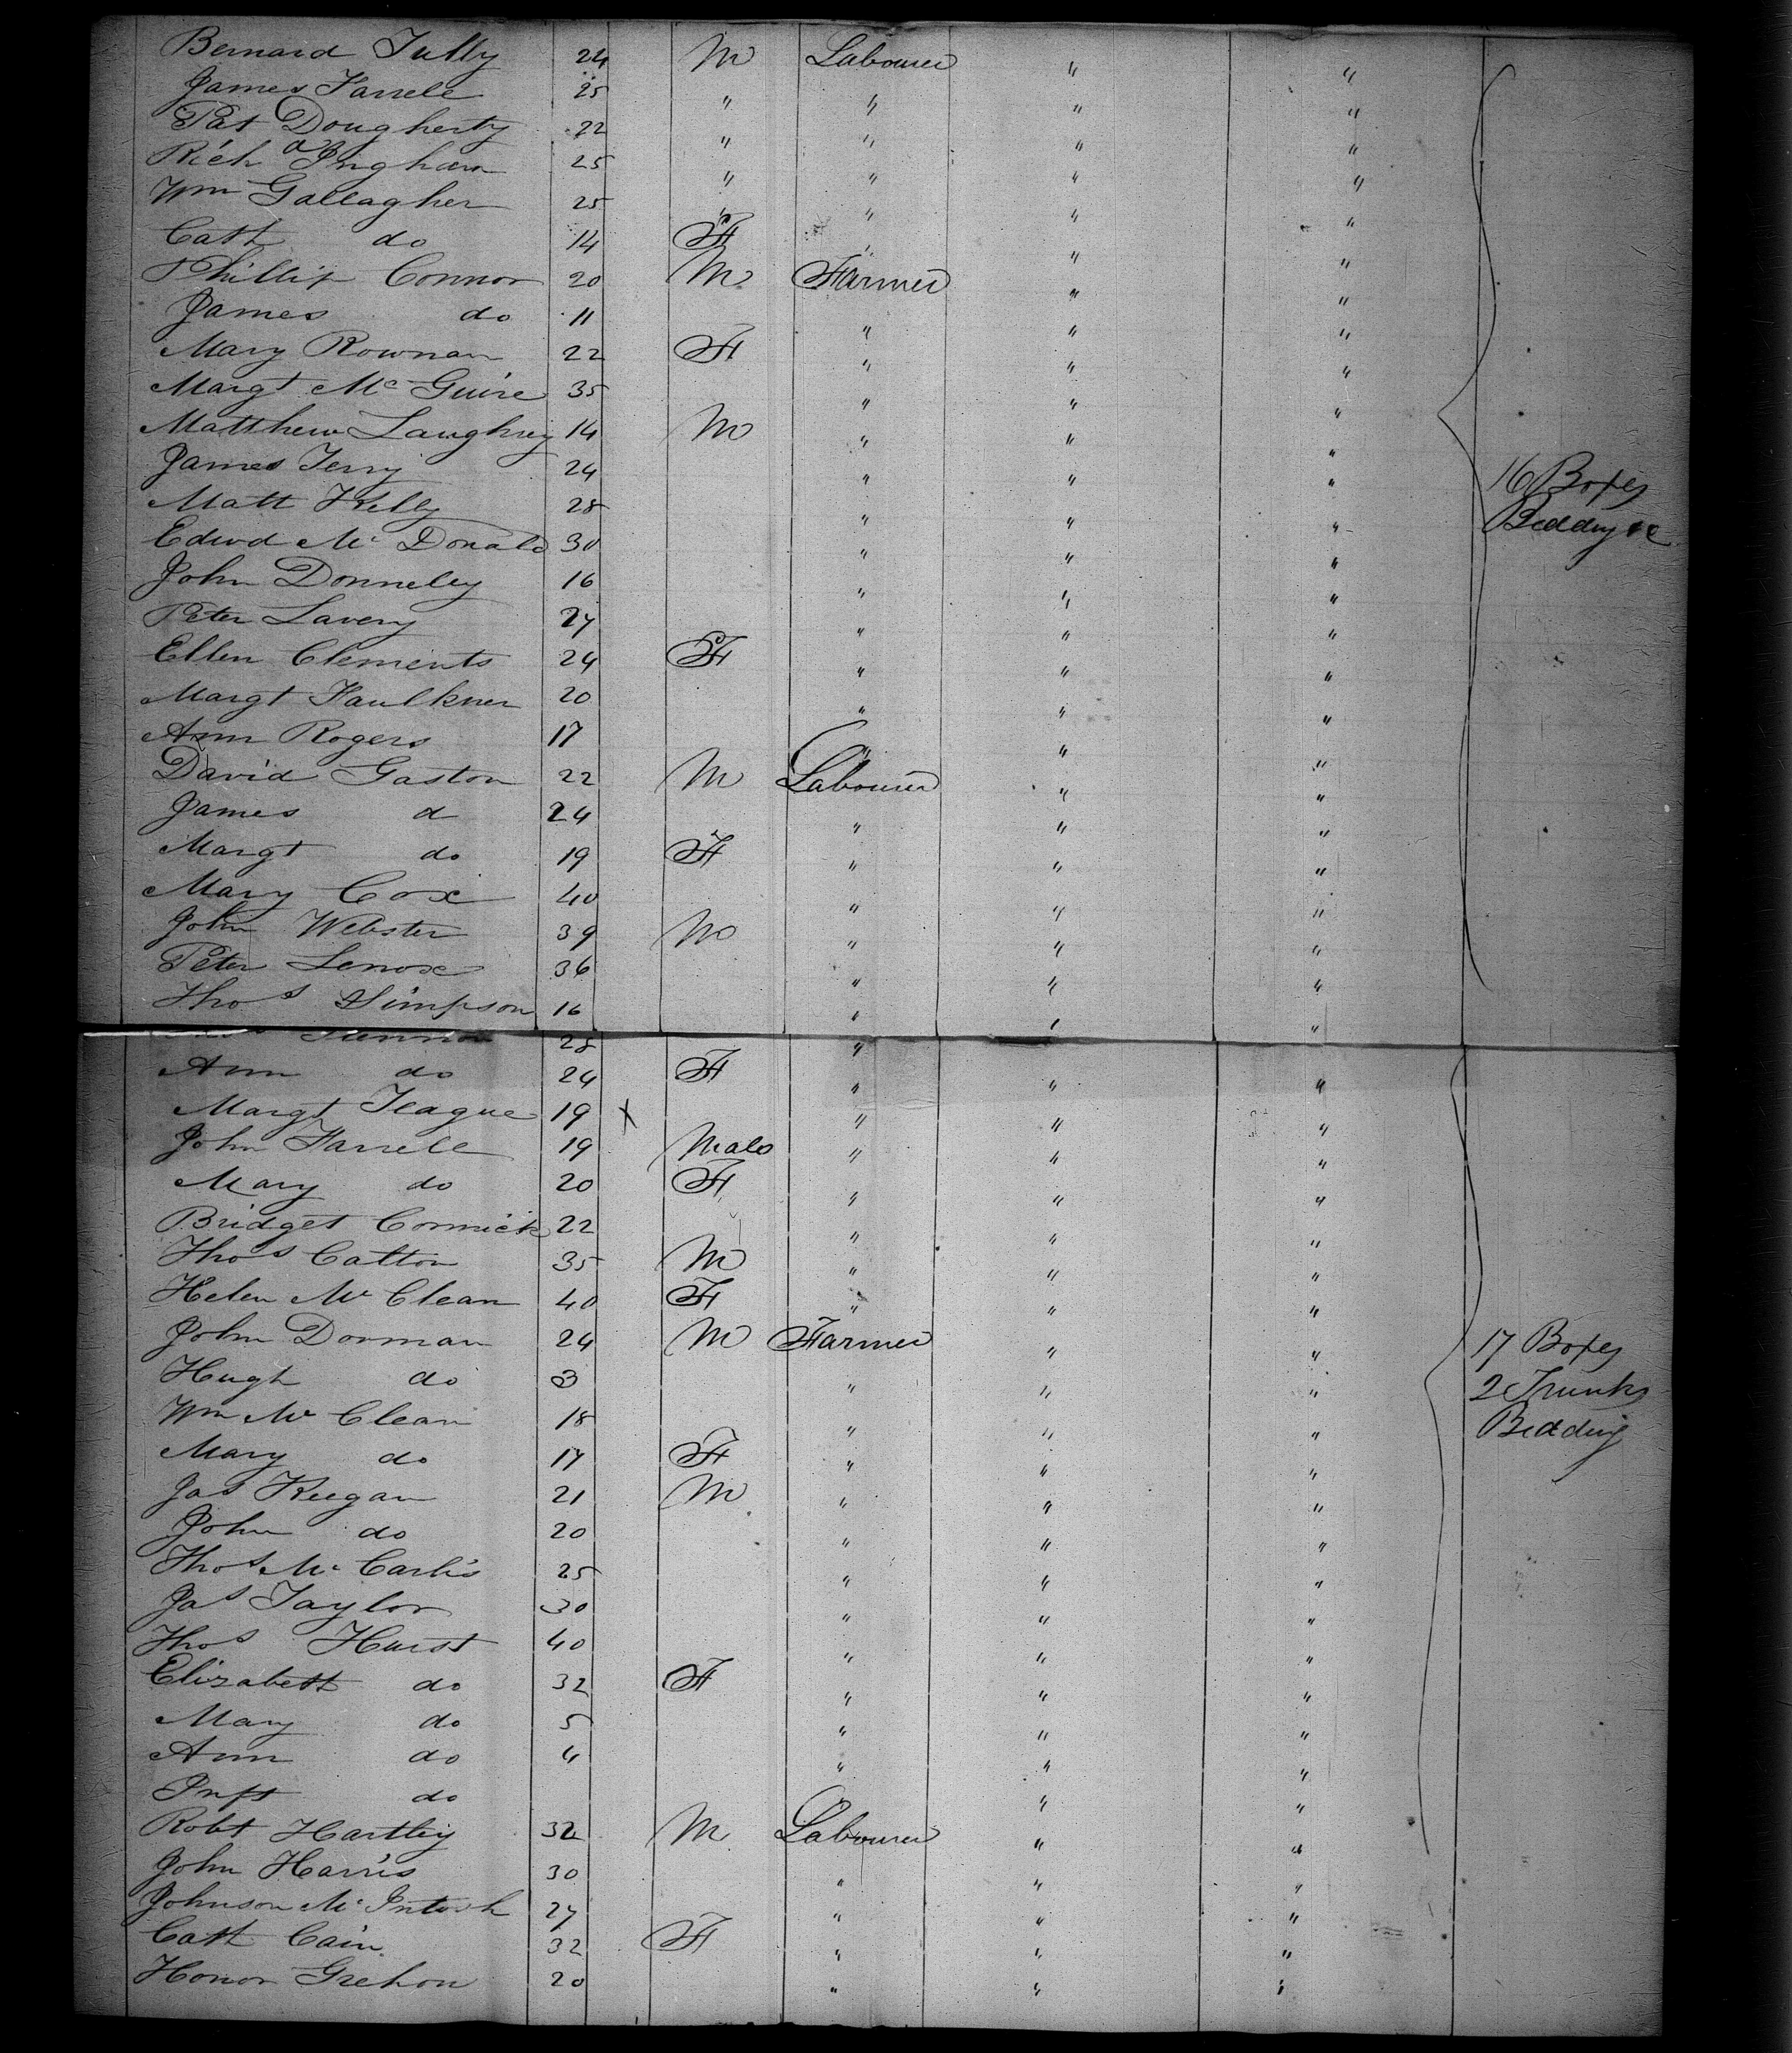 Bernard Tully 24 M Labourer " "
James Farrele 25 " " " "
Pat Dougherty 22 " " " "
Rich Bingham 25 " " " "
Wm Gallagher 25 " " " "
Cath do 14 F " " "
Phillip Connor 20 M Farmer " "
James do 11 " " "
Mary Rownan 22 F " " "
Margt Mc Guire 35 " " "
Matthew Laughrey 14 M " " "
James Terry 24 " " "
16 Boxes
Matt Kelly 28 " " "
Bedding &c
Edwd Mc Donald 30 " " "
John Donneley 16 " " "
Peter Lavery 27 " " "
Ellen Clements 24 F " " "
Margt Faulkner 20 " " "
Ann Rogers 17 " " "
David Gaston 22 M Labourer " "
James d 24 " " "
Margt do 19 F " " "
Mary Cox 40 " " "
John Webster 39 M " " "
Peter Lenox 36 " " "
Thos Simpson 16 " " "
28 "
Ann do 24 F " " "
Margt Teague 19 X " " "
John Farrele 19 Male " " "
Mary do 20 F " " "
Bridget Cormick 22 " " "
Thos Catton 35 M " " "
Helen Mc Clean 40 F " " "
John Dorman 24 M Farmer " " 17 Boxes
Hugh do 3 " " " 2 Trunks
Wm Mc Clean 18 " " " Bedding
Mary do 17 F " " "
Jas Keegan 21 M " " "
John do 20 " " "
Thos Mc Carlis 25 " " "
Jas Taylor 30 " " "
Thos Hurst 40 " " "
Elizabeth do 32 F " " "
Mary do 5 " " "
Ann do 4 " " "
Inft do " "
Robt Hartley 32 M Labourer " "
John Harris 30 " " "
Johnson Mc Intosh 27 " " "
Cath Cain 32 F " " "
Honor Grehon 20 " " "